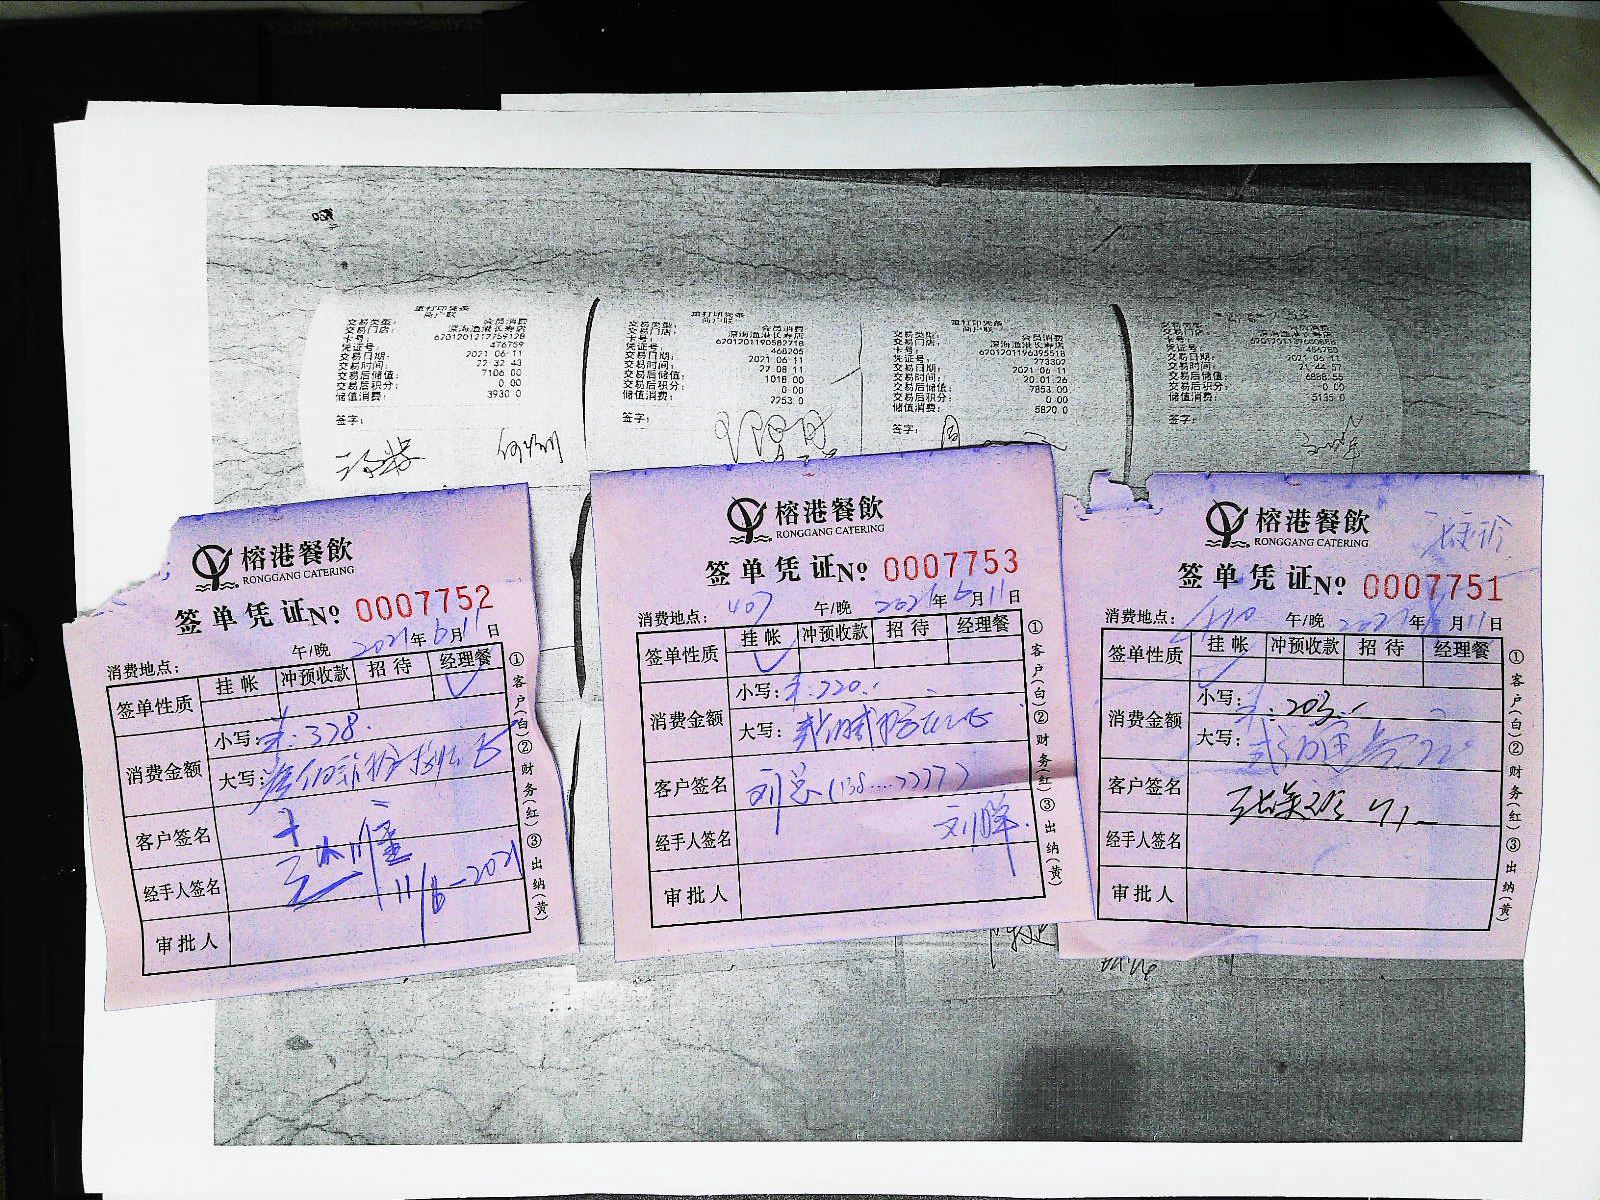 重打印凭条
商户联
交易类型： 会员消费
交易门店： 深海渔港长寿店
卡号： 6201201217759128
凭证号： 476759
交易日期： 2021 06-11
交易时间： 22 32 43
交易后储值： 7106 00
交易后积分： 0 00
储值消费： 3930 0
签字：
重打印凭条
商户联
交易类型： 会员消费
交易门店： 深海渔港长寿店
卡号： 6201201190582718
凭证号： 468205
交易日期： 2021 06 11
交易时间： 22 08 11
交易后储值： 1018 00
交易后积分： 0 00
储值消费： 2253 0
签字：
重打印凭条
商户联
交易类型： 会员消费
交易门店： 深海渔港长寿店
卡号： 6201201196395518
凭证号： 273302
交易日期： 2021 06 11
交易时间： 20 01 26
交易后储值： 7853 00
交易后积分： 0 00
储值消费： 5820 0
签字：
交易类型： 会员消费
交易门店： 深海渔港长寿店
卡号：
凭证号：
交易日期： 2021 06 11
交易时间： 21 44 57
交易后储值： 6888 55
交易后积分： 0 00
储值消费： 5135 0
签字：
榕港餐飲
RONGGANG CATERING
签单凭证 No 0007752
消费地点： 午/晚 2021年6月11日
签单性质 挂帐 冲预收款 招待 经理餐
消费金额 小写：328.
大写：
客户签名
经手人签名 11/6-2021
审批人
①客户(白)②财务(红)③出纳(黄)
榕港餐飲
RONGGANG CATERING
签单凭证 No 0007753
消费地点：407 午/晚 2021年6月11日
签单性质 挂帐 冲预收款 招待 经理餐
消费金额 小写：220.
大写：
客户签名 刘总(138....7777)
经手人签名 刘
审批人
①客户(白)②财务(红)③出纳(黄)
榕港餐飲
RONGGANG CATERING
签单凭证 No 0007751
消费地点： 午/晚 2021年6月11日
签单性质 挂帐 冲预收款 招待 经理餐
消费金额 小写：203.
大写：
客户签名
经手人签名
审批人
①客户(白)②财务(红)③出纳(黄)